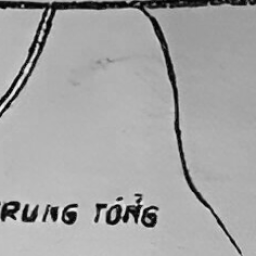 RUNG TỔNG